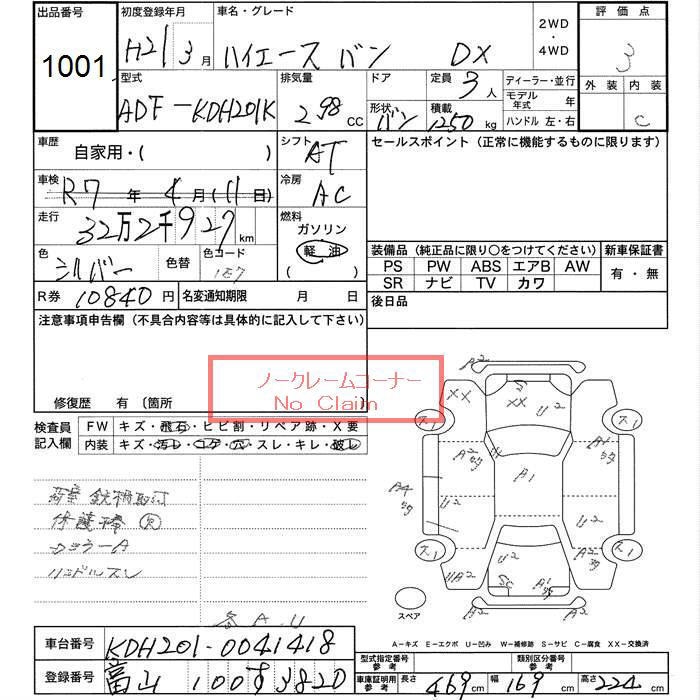 出品番号 初度登録年月 車名・グレード 2WD・4WD 評価点
1001 H21 3月 ハイエース バン DX 3
型式 排気量 ドア 定員 ディーラー・並行 外装 内装
ADF-KDH201K 2.98 CC 3人 モデル年式 年 C
形状 バン 積載 1250 kg ハンドル 左・右
車歴 自家用・( ) シフト AT セールスポイント(正常に機能するものに限ります)
車検 R7年4月(11日) 冷房 AC
走行 32万2千927km 燃料 ガソリン
軽油
( )
色 シルバー 色替 色コード 1E7
装備品(純正品に限り○をつけてください) 新車保証書
PS PW ABS エアB AW 有・無
SR ナビ TV カワ
R券 10840円 名変通知期限 月 日 後日品
注意事項申告欄(不具合内容等は具体的に記入して下さい)
ノークレームコーナー
No Claim
修復歴 有 〔箇所 〕
検査員記入欄 FW キズ・飛石・ヒビ割・リペア跡・X要
内装 キズ・汚レ・コゲ・穴・スレ・キレ・破レ
保護棒
カラーA
ハンドルスレ
A2
S
XX XX U2
A2 A2
A4 A1
U2 U2
U2 U2
UA2 SC A1 A2
スペア
A-キズ E-エクボ U-凹み W-補修跡 S-サビ C-腐食 XX-交換済
車台番号 KDH201-0041418
型式指定番号 参考 類別区分番号 参考
登録番号 富山 100 す 3820
車庫証明用 参考 長さ 469cm 幅 169cm 高さ 224cm